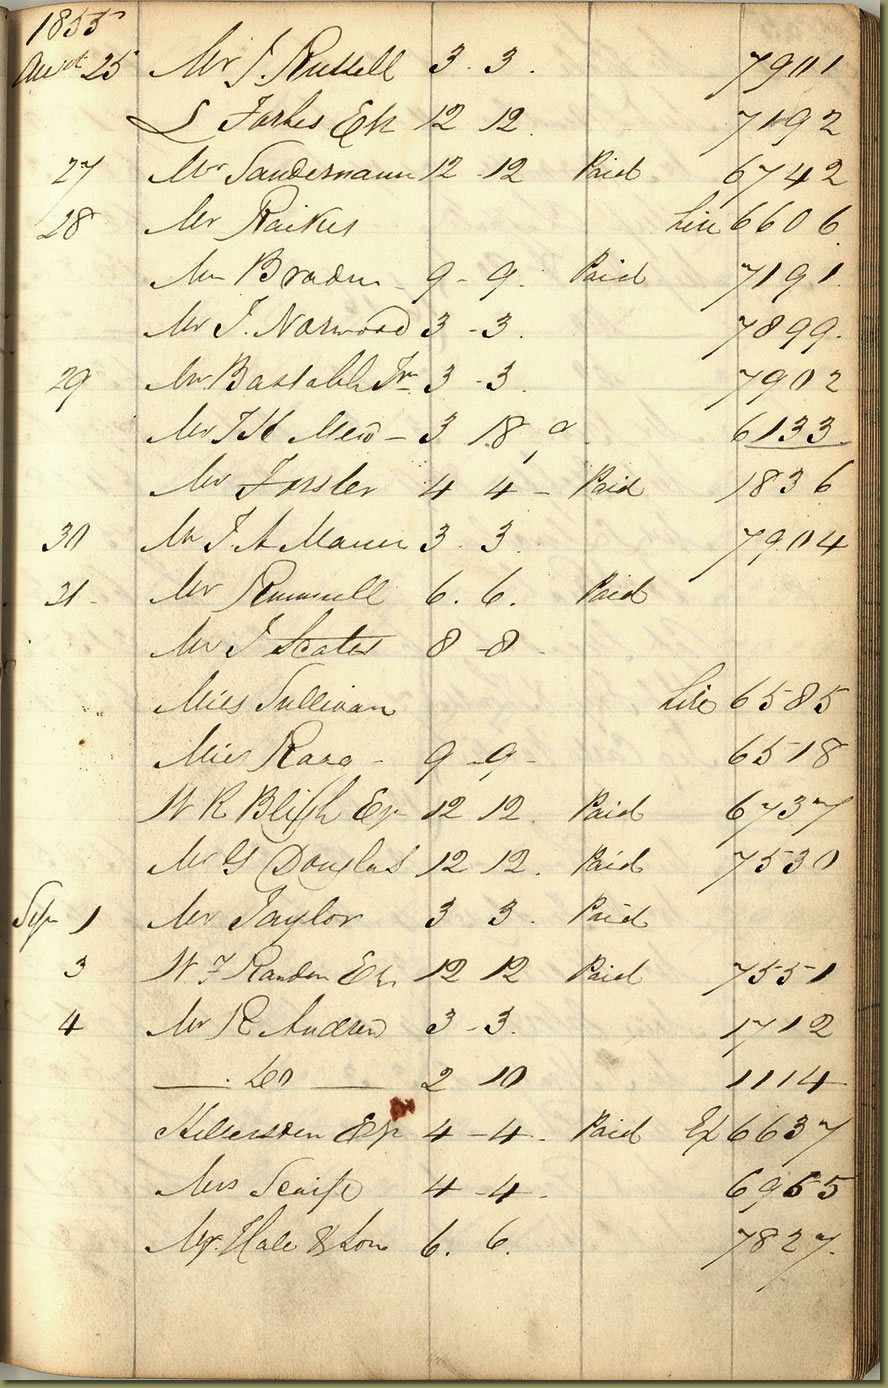 1855
Augt 25 Mr J. Russell 3 . 3 . 7901
Forbes Esq 12 12 7192
27 Mr Sandemann 12 - 12 Paid 6742
28 Mr Raikes 6606
9 - 9 . Paid 7191
Mr J. Norwood 3 - 3 . 7899.
29 Mr Bastable Jr 3 - 3 . 7902
Mr Mew - 3 18 6133
Mr Forster 4 4 - Paid 1836
30 3 . 3 . 7904
31 Mr Rummell 6 . 6 . Paid
Mr J Scates 8 - 8 -
Miss Sullivan 6585
Miss 9 - 9 - 6518
W R Bligh Esq 12 12 . Paid 6737
Mr G Douglas 12 12 . Paid 7530
Sep 1 Mr Taylor 3 3 . Paid
3 W F Esq 12 12 Paid 7551
4 Mr R Andrew 3 - 3 . 1712
—— . Do —— 2 10 1114
Esq 4 - 4 . Paid 6637
Mrs Scaife 4 - 4 . 6965
Mr. Hale & Son 6 . 6 . 7827.